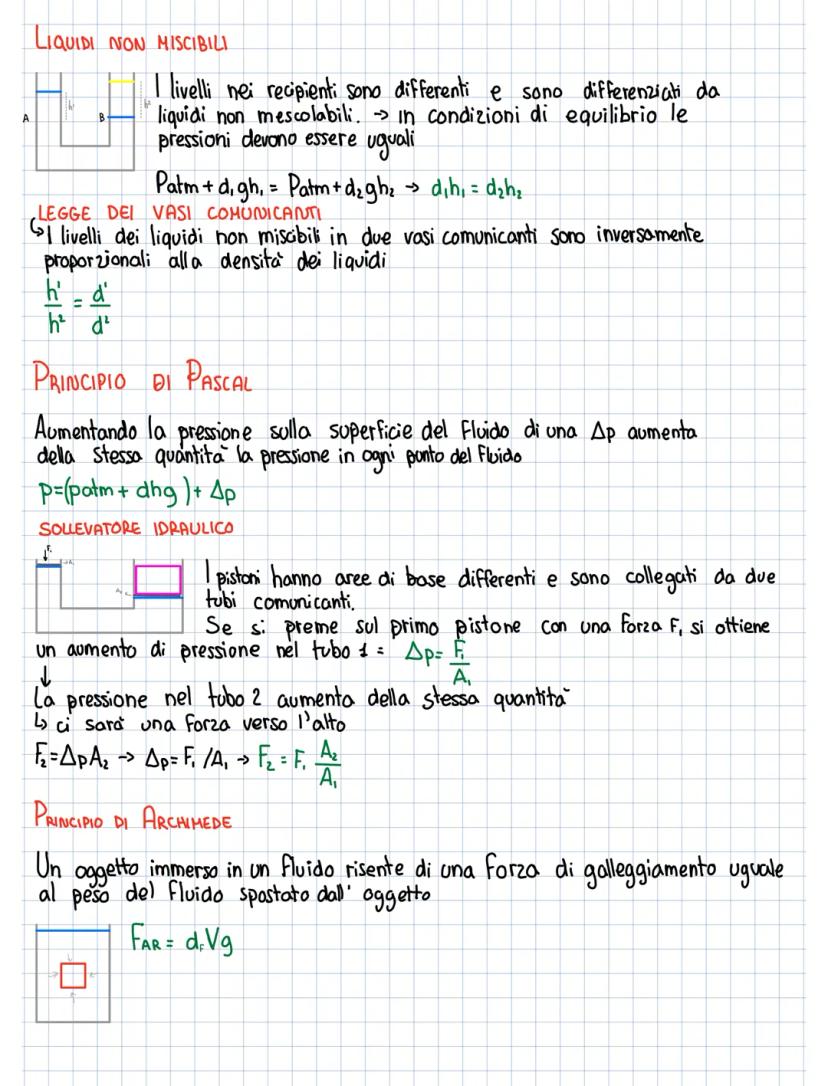 LIQUIDI NON MISCIBILI
I livelli nei recipienti sono differenti e sono differenziati da
A h¹ B h²
liquidi non mescolabili. → in condizioni di equilibrio le
pressioni devono essere uguali
Patm + d₁gh₁ = Patm + d₂gh₂ → d₁h₁ = d₂h₂
LEGGE DEI VASI COMUNICANTI
↳ I livelli dei liquidi non miscibili in due vasi comunicanti sono inversamente
proporzionali alla densità dei liquidi
h¹/h² = d¹/d²
PRINCIPIO DI PASCAL
Aumentando la pressione sulla superficie del fluido di una Δp aumenta
della stessa quantità la pressione in ogni punto del fluido
p=(patm + dhg)+ Δp
SOLLEVATORE IDRAULICO
↓F₁ A₁ A₂
I pistoni hanno aree di base differenti e sono collegati da due
tubi comunicanti.
Se si preme sul primo pistone con una forza F₁ si ottiene
un aumento di pressione nel tubo 1 = Δp= F₁/A₁
↓
La pressione nel tubo 2 aumenta della stessa quantità
↳ ci sarà una forza verso l'alto
F₂=ΔpA₂ → Δp= F₁ /A₁ → F₂ = F₁ A₂/A₁
PRINCIPIO DI ARCHIMEDE
Un oggetto immerso in un fluido risente di una forza di galleggiamento uguale
al peso del fluido spostato dall' oggetto
FAR = dFVg